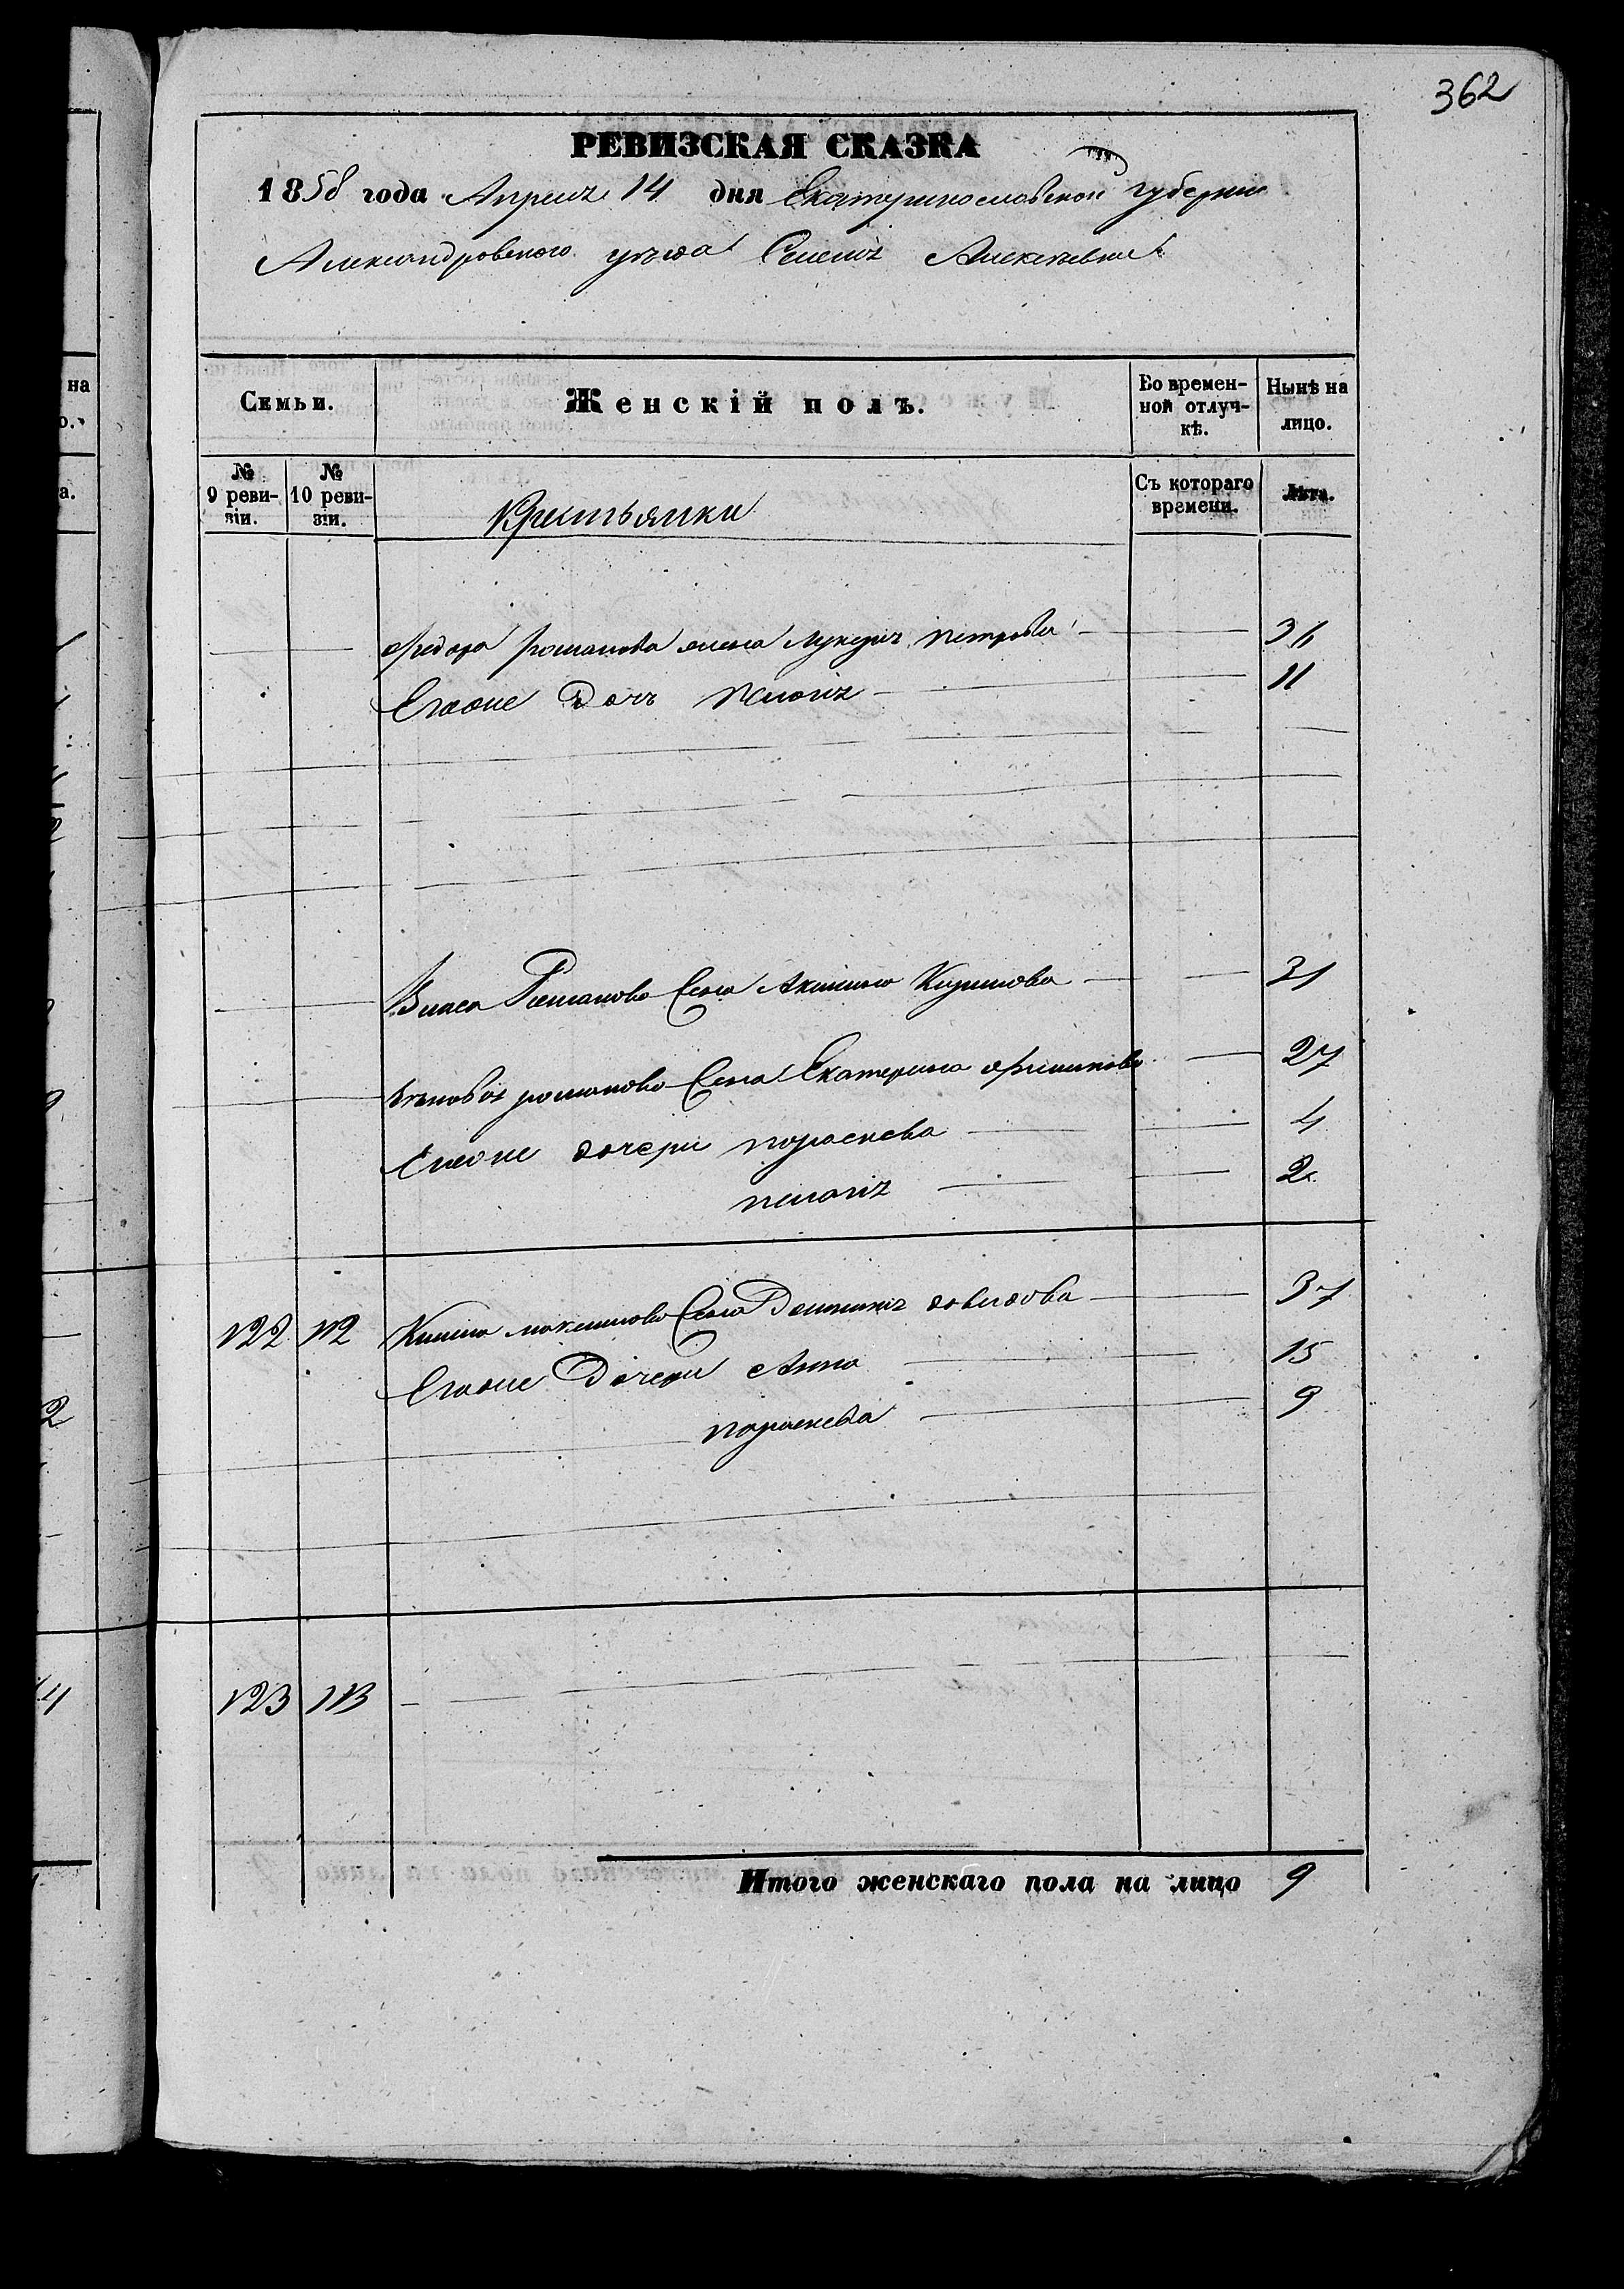 362
РЕВИЗСКАЯ СКАЗКА
1858 года Апреля 14 дня Екатеринославской губернии
Александровского уезда Селенія Алексеевки
Семьи. Женскій полъ. Во времен-ной отлуч-кѣ. Нынѣ на лицо.
№ 9 реви-зіи. № 10 реви-зіи. Крестьянки Съ котораго времени. Лѣта.
Федора романова жена Лукерія петрова 36
Егоже Дочь пелагія 11
Власа Романова Жена Акилина 31
Якова романова Жена Екатерина 27
Егоже дочери параскева 4
пелагія 2
122 112 максимова Жена давидова 37
Егоже Дочери Анна 15
параскева 9
123 113
Итого женскаго пола на лицо 9
на
2
14